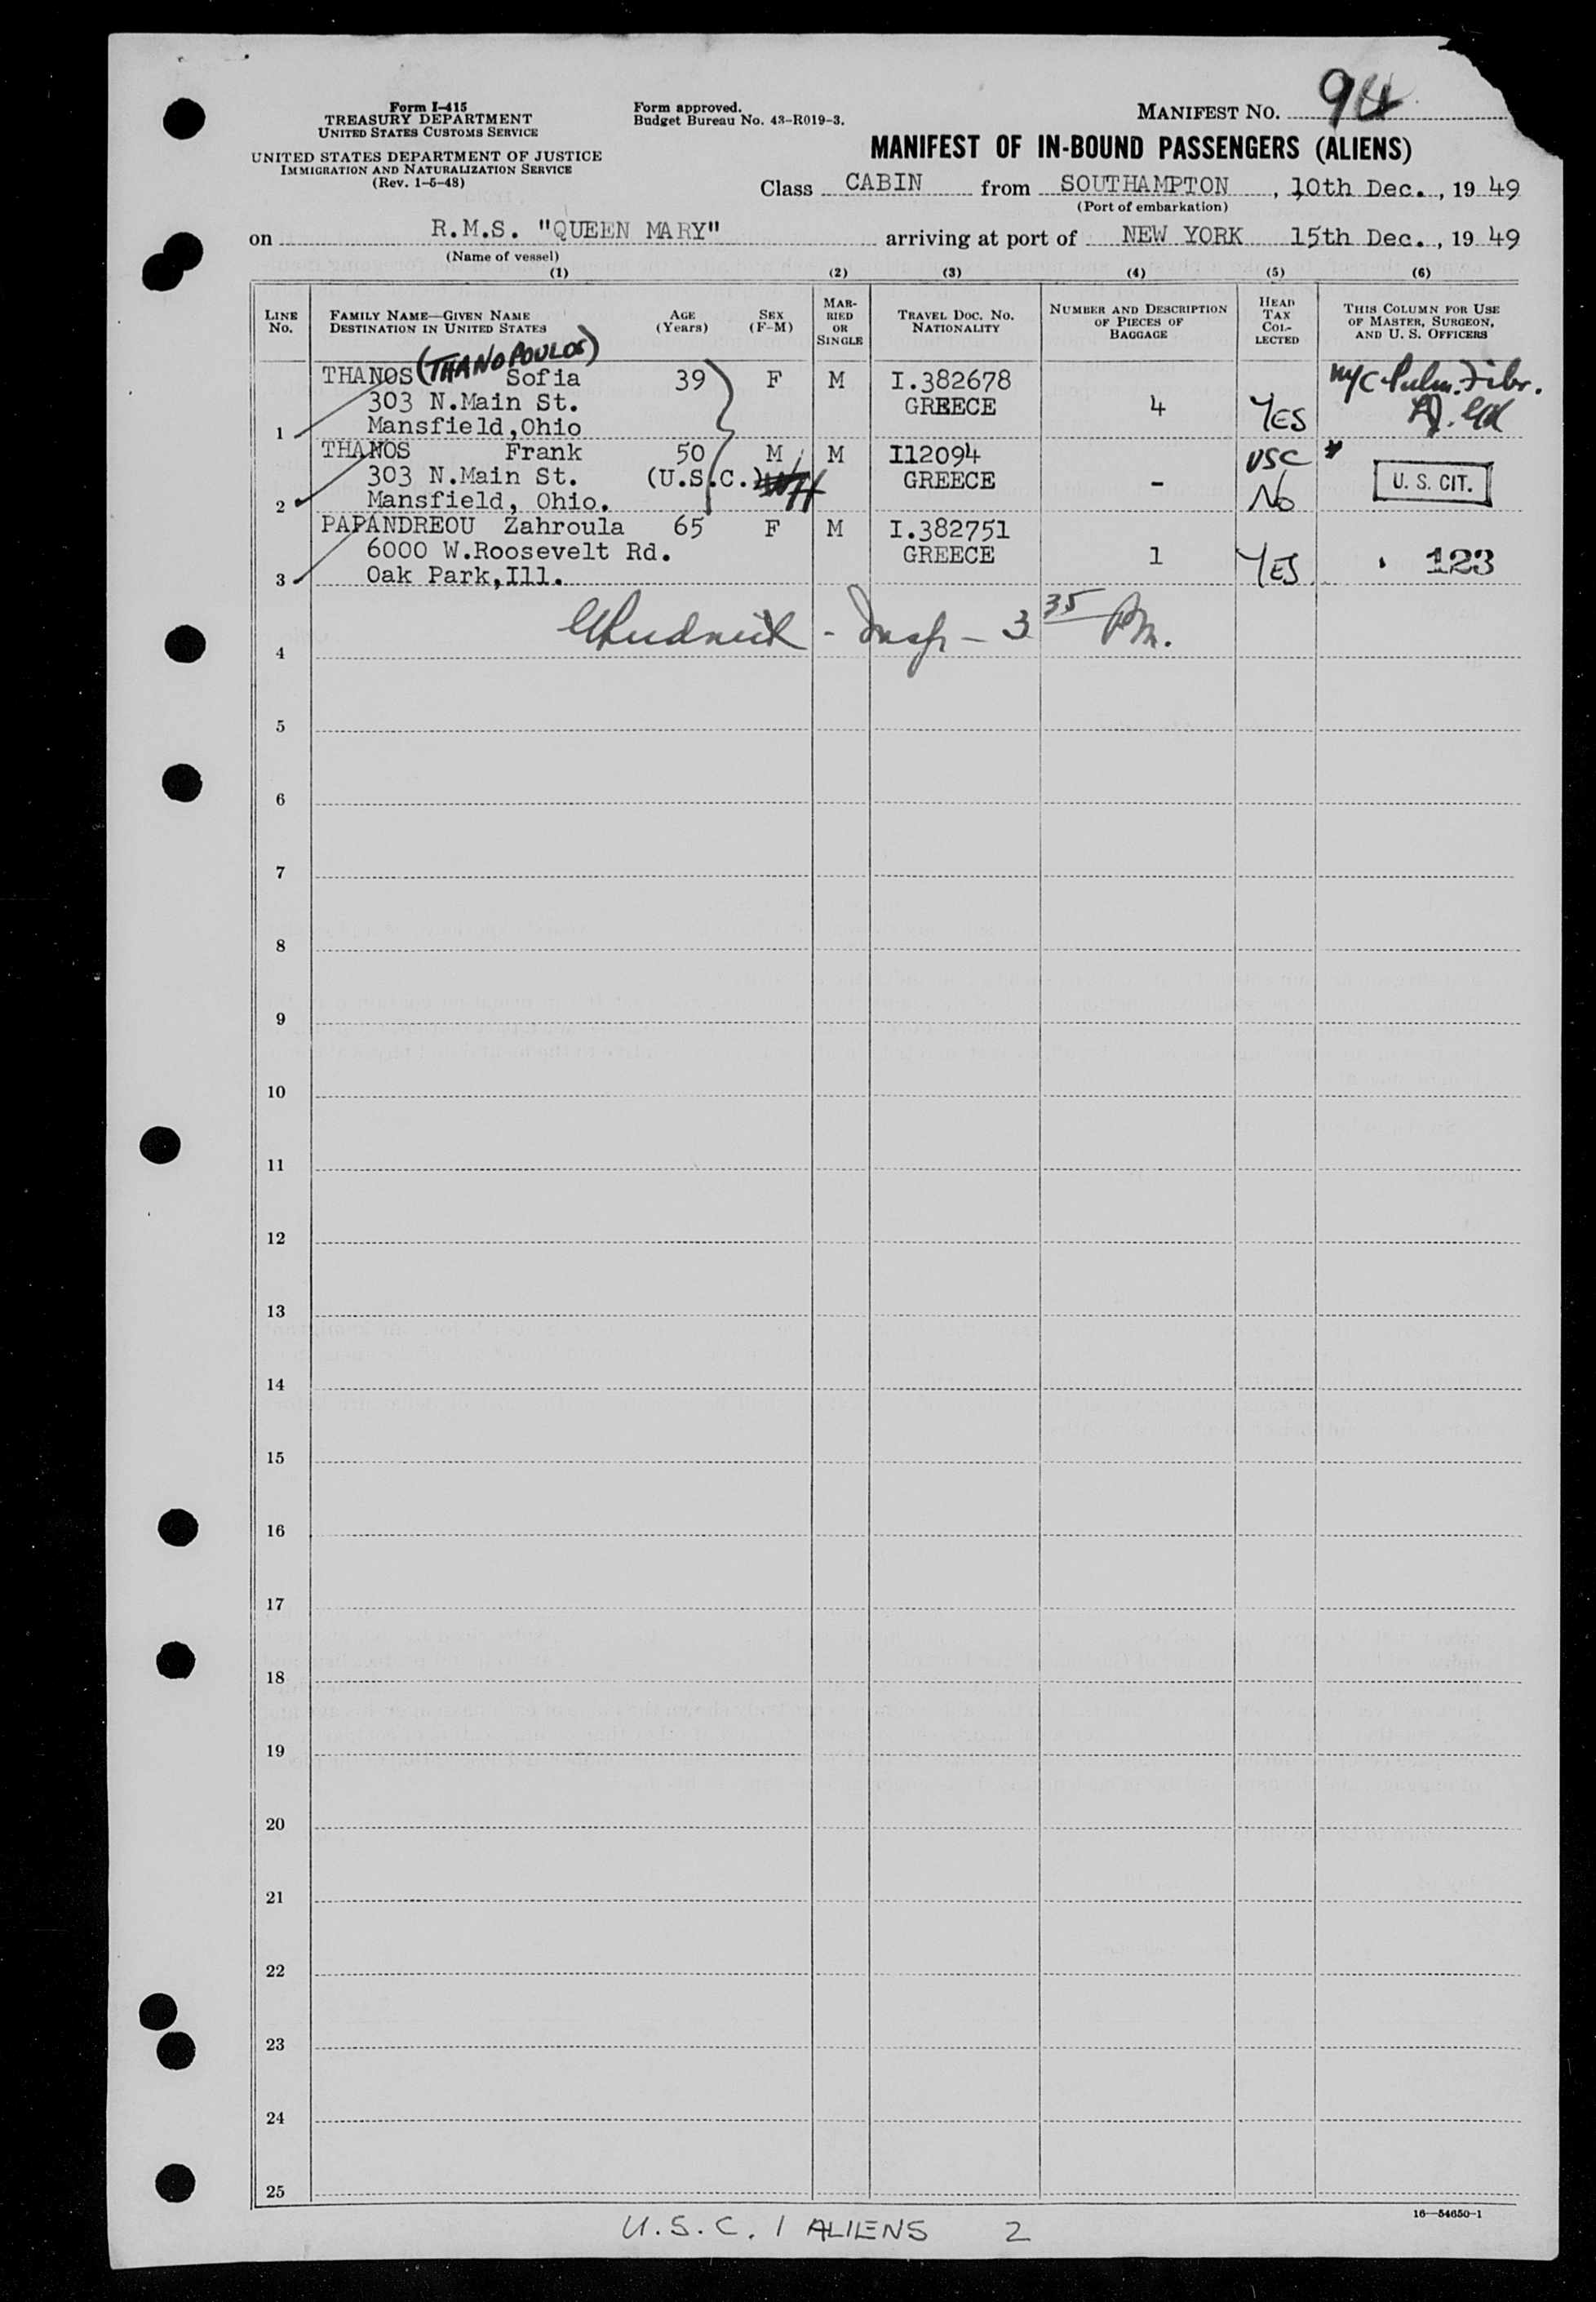 Form I-415
TREASURY DEPARTMENT
UNITED STATES CUSTOMS SERVICE
UNITED STATES DEPARTMENT OF JUSTICE
IMMIGRATION AND NATURALIZATION SERVICE
(Rev. 1-5-48)
Form approved.
Budget Bureau No. 43-R019-3.
MANIFEST No. 94
MANIFEST OF IN-BOUND PASSENGERS (ALIENS)
Class CABIN from SOUTHAMPTON, 10th Dec., 1949
(Port of embarkation)
on R.M.S. "QUEEN MARY" arriving at port of NEW YORK 15th Dec., 1949
(Name of vessel)
(1) (2) (3) (4) (5) (6)
LINE No. FAMILY NAME—GIVEN NAME DESTINATION IN UNITED STATES AGE (Years) SEX (F-M) MARRIED OR SINGLE TRAVEL DOC. No. NATIONALITY NUMBER AND DESCRIPTION OF PIECES OF BAGGAGE HEAD TAX COLLECTED THIS COLUMN FOR USE OF MASTER, SURGEON, AND U. S. OFFICERS
(THANOPOULOS)
THANOS Sofia 39 F M I.382678
303 N.Main St. GREECE 4 YES
1 Mansfield,Ohio
THANOS Frank 50 M M I12094 USC
303 N.Main St. (U.S.C.) GREECE - No U. S. CIT.
2 Mansfield, Ohio.
PAPANDREOU Zahroula 65 F M I.382751
6000 W.Roosevelt Rd. GREECE 1 YES 123
3 Oak Park,Ill.
- Insp - 3 35 PM.
4
5
6
7
8
9
10
11
12
13
14
15
16
17
18
19
20
21
22
23
24
25
16—54650-1
U.S.C. 1 ALIENS 2